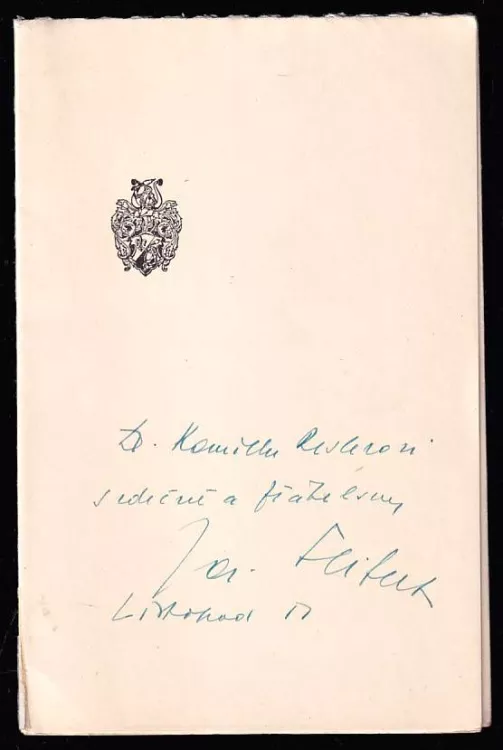 Dr. Kamillu Reslerovi
srdečně a přátelsky
Jar. Seifert
Listopad